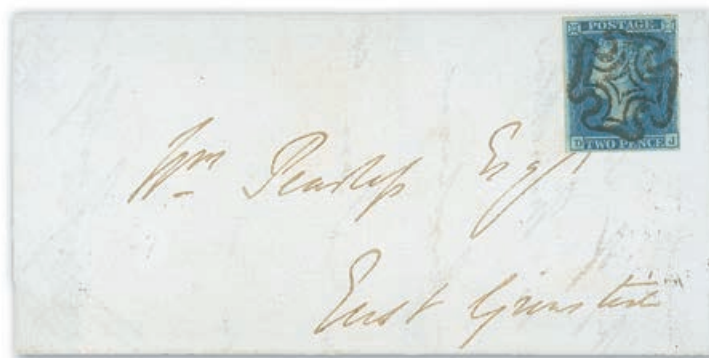 POSTAGE
D TWO PENCE J
Wm Pearless Esqr
East Grinstead